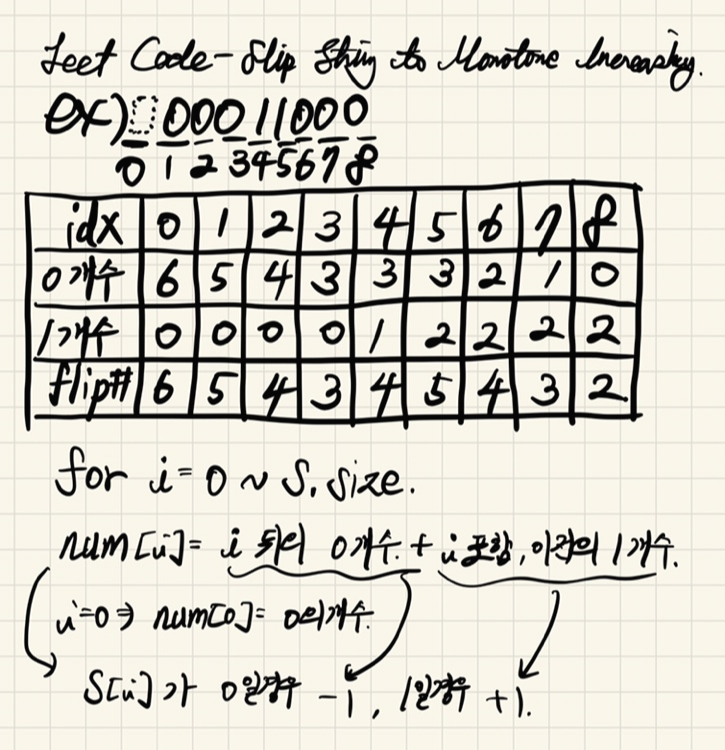 Leet Code - Flip String to Monotone Increasing.
ex) 00011000
0 1 2 3 4 5 6 7 8
idx 0 1 2 3 4 5 6 7 8
0개수 6 5 4 3 3 3 2 1 0
1개수 0 0 0 0 1 2 2 2 2
flip# 6 5 4 3 4 5 4 3 2
for i = 0 ~ S.size.
num[i] = i 뒤의 0개수. + i 포함, 이전의 1개수.
i=0 → num[0] = 0의개수.
S[i]가 0일경우 -1, 1일경우 +1.